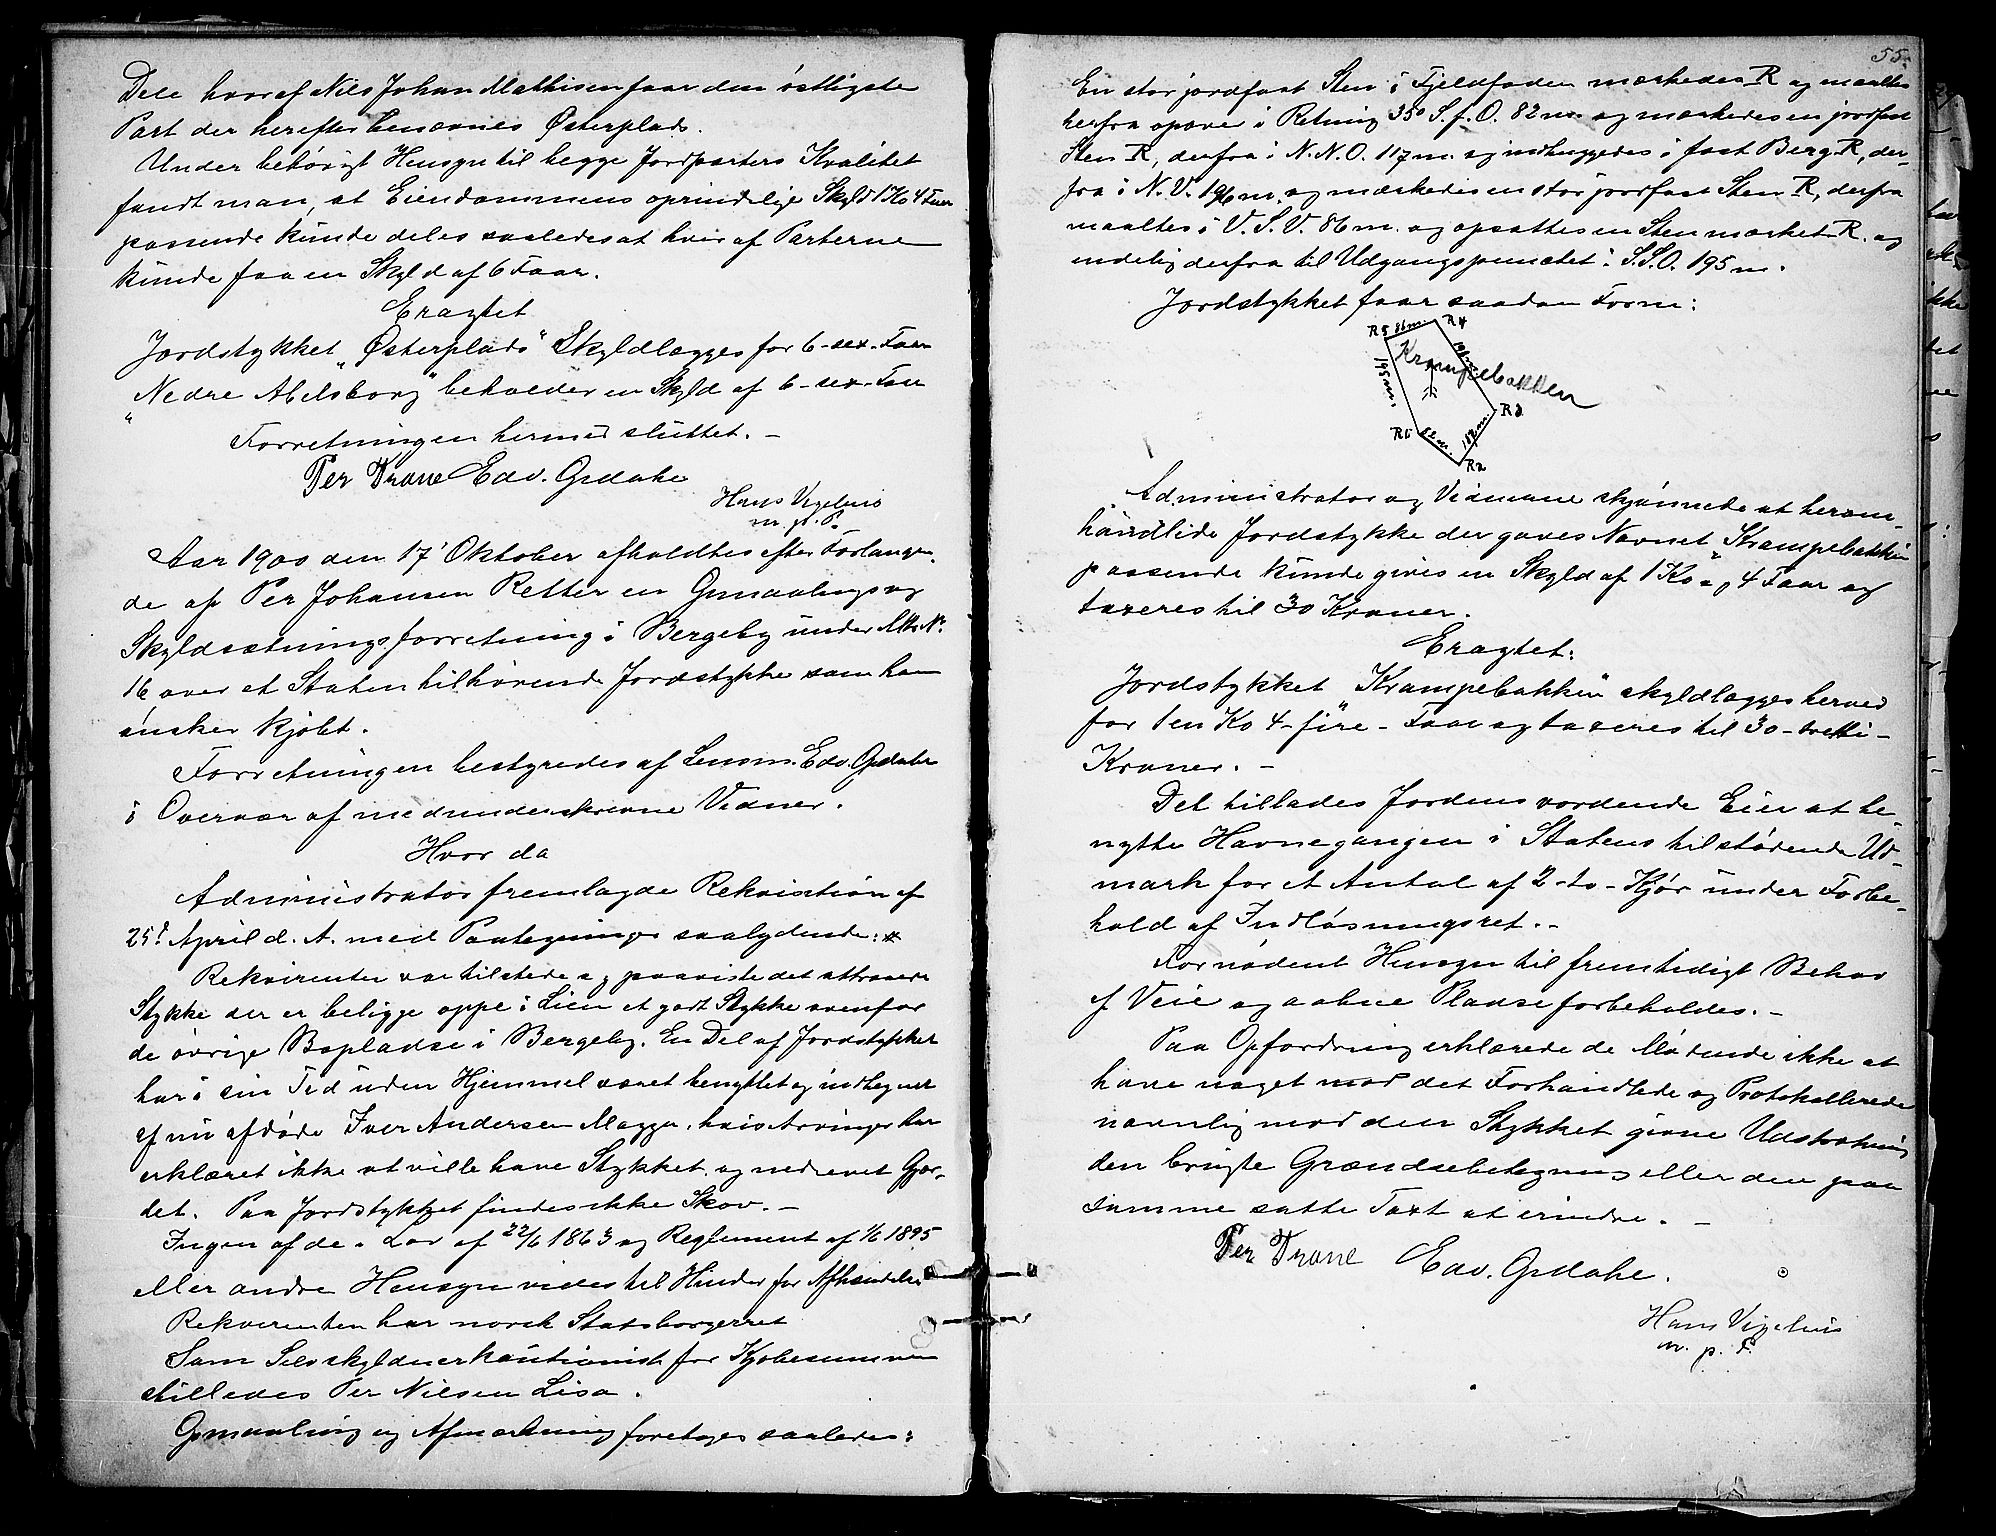 Dele hvoraf Nils Johan Mathisen faar den östligste
Part der herefter benævnes Østerplads.
Under behörigt Hensyn til begge Jordparters Kvalitet
fandt man, at Eiendommens oprindelige Skyld 1 Ko 4 Faar
passende kunde deles saaledes at hver af Parterne
kunde faa en Skyld af 6 Faar.
Eragtet
Jordstykket „Østerplads“ Skyldlægges for 6 - sex - Faar
„Nedre Abelsborg“ beholder en Skyld af 6 - sex - Faar
Forretningen hermed sluttet. -
Per Trane Edv. Gjdahe
Hans Vigelius
m. p. P.
Aar 1900 den 17' Oktober afholdtes efter Forlangen-
de af Per Johansen Retter en Opmaalings og
Skyldsætningsforretning i Bergeby under Mtr. Nr.
16 over et Staten tilhörende Jordstykke som han
önsker kjöbt.
Forretningen bestyredes af Lensm. Edv. Gjdahe
i Overvær af medunderskrevne Vidner.
Hvor da
Administrator fremlagde Rekvisition af
25' April d. A. med Paategninger saalydende: #
Rekvirenten var tilstede og paaviste det attraaede
Stykke der er beligge oppe i Lien et godt Stykke ovenfor
de övrige Bopladse i Bergeby. En Del af Jordstykket
har i sin Tid uden Hjemmel været benyttet og indhegnet
af nu afdöde Iver Andersen Magga, hvis Arvinger har
erklæret ikke at ville have Stykket og nedrevet Gjær-
det. Paa Jordstykket findes ikke Skov. -
Ingen af de i Lov af 22/6 1863 og Reglement af 1/6 1895
eller andre Hensyn vides til Hinder for Afhændelse
Rekvirenten har norsk Statsborgerret
Som Selvskyldnerkautionist for Kjøbesummen
stilledes Per Nilsen Lisa.
Opmaaling og Afmærkning foretoges saaledes:
55.
En stor jordfast Sten i Fjeldfoden mærkedes R og maaltes
herfra opover i Retning 35° S. f. O. 82 m. og mærkedes en jordfast
Sten R, derfra i N. N. O. 117 m. og indhuggedes i fast Berg R, der-
fra i N. V. 196 m. og mærkedes en stor jordfast Sten R, derfra
maaltes i V. S. V. 86 m. og opsattes en Sten mærket R. og
endelig derfra til Udgangspunctet i S.S.O. 195 m.
Jordstykket faar saadan Form:
R5 86 m. R4
Krampebakken
196 m.
195 m.
R3
R1 82 m.
R2
Administrator og Vidnerne skjønnede at herom-
handlede Jordstykke der gaves Navnet „Krampebakken“
passende kunde gives en Skyld af 1 Ko og 4 Faar og
taxeres til 30 Kroner.
Eragtet:
Jordstykket „Krampebakken“ skyldlægges herved
for 1 en Ko 4 - fire - Faar og taxeres til 30 - tretti -
Kroner. -
Det tillades Jordens vordende Eier at be-
nytte Havnegangen i Statens tilstödende Ud-
mark for et Antal af 2 - to - Kjör under Forbe-
hold af Indløsningsret. -
Fornödent Hensyn til fremtidigt Behov
af Veie og aabne Pladse forbeholdes. -
Paa Opfordring erklærede de Mödende ikke at
have noget mod det Forhandlede og Protokollerede
navnlig mod den Stykket givne Udstrækning
den brugte Grændsebetegning eller den paa
samme satte Taxt at erindre. -
Per Trane Edv. Gjdahe.
Hans Vigelius
m. p. P.